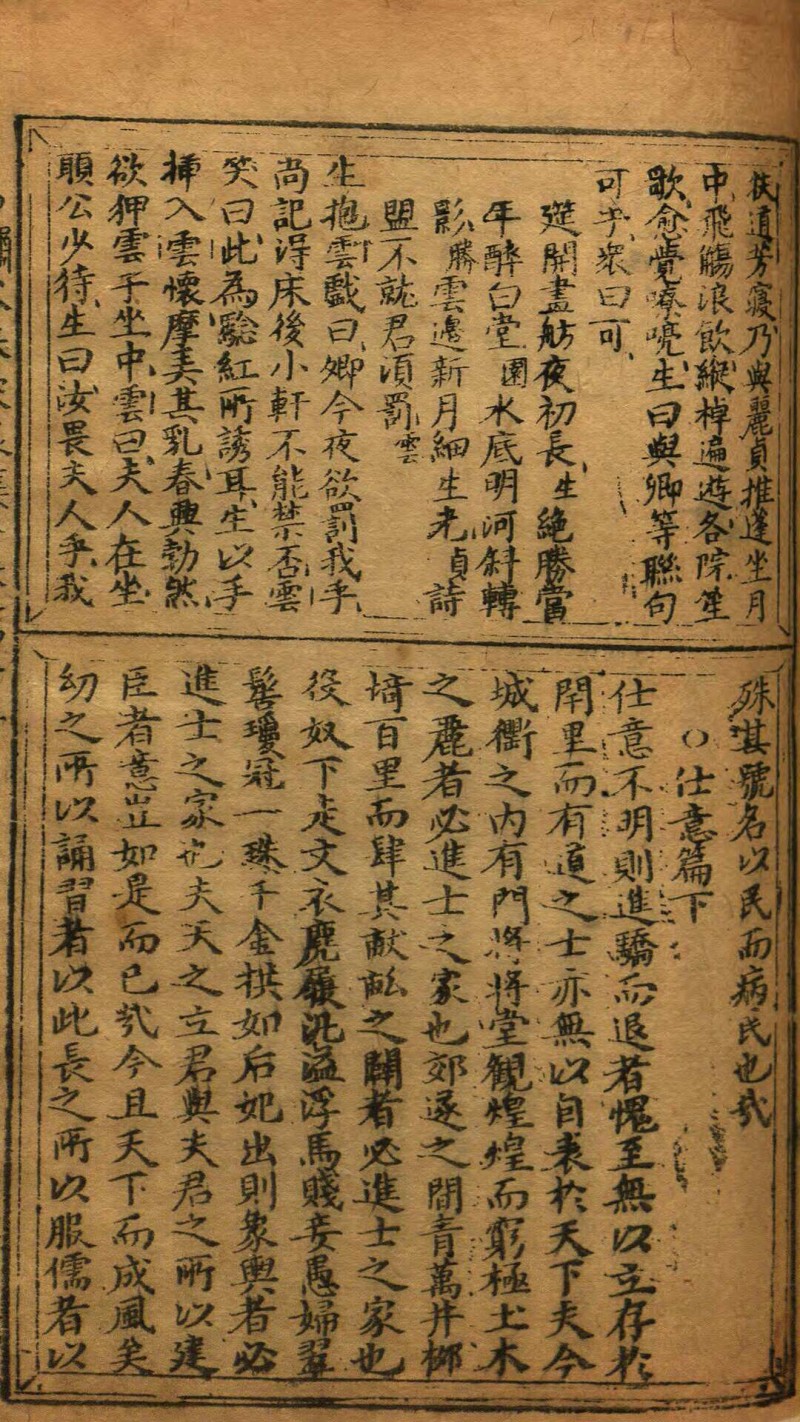 使道芳寢乃與麗貞推蓬坐月
中飛觴浪飲縱棹遍遊各院笙
歌愈覺嘹喨生曰與卿等聯句
可乎眾曰可
遊開畫舫夜初長生絶勝當
年醉白堂園水底明河斜轉
影勝雲邊新月細生光貞詩
盟不就君須罰雲
生抱雲戲曰卿今夜欲罰我乎
尚記淂床後小軒不能禁否雲
笑曰此為驗紅所誘耳生以手
揷入雲懷摩弄其乳春興勃然
欲狎雲于坐中雲曰夫人在坐
願公少待生曰汝畏夫人乎我
殊甚號名以民而病民也㢤
○仕意篇下
仕意不明則進驕而退者愧至無以立存於
閈里而有道之士亦無以自表於天下夫今
城衢之内有門將將堂觀煌煌而窮極土木
之麗者必進士之家也郊遂之間青萬井
埼百里而肆其畝之闢者必進士之家也
役奴下走文衣麂履汎溢浮馬賤妾愚婦翠
髻瓊冠一珠千金拱如后妃出則象輿者必
進士之家也夫天之立君與夫君之所以建
臣者意豈如是而已㢤今且天下而成風矣
幼之所以誦習者以此長之所以服儒者以